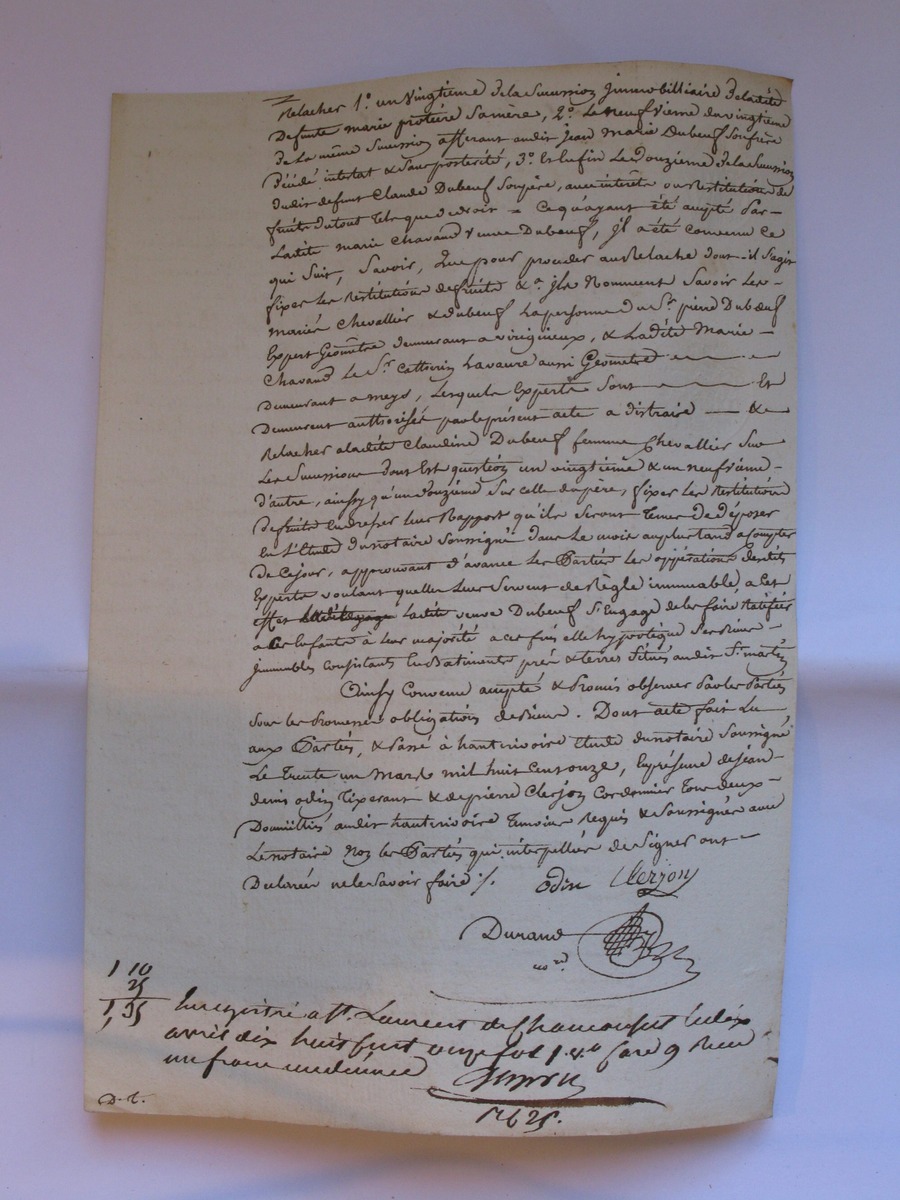 Relacher 1.o un vingtieme de la Sucession Jmmobilliaire de ladite
Defunte marie protiere Sa mère, 2.o Le neufvieme du vingtieme
de La même Sucession afferant audit jean Marie Dubeuf Son frère
Décédé intestat & Sans posterité, 3.o Et Enfin Le Douzieme de la Sucession
dudit defunt Claude Dubeuf Son père, avec intérêts ou Restitutions de
fruits du tout Tels que de droit = Ce qu'ayant été accepté Par =
Ladite marie Chavand Veuve Dubeuf, Jl a été Convenu Ce
qui Suit, Savoir, Que pour proceder au Relache dont il S'agit
fixer Les Restitutions de fruits &.a jls Nomment Savoir Les =
mariés Chevallier & dubeuf La personne du S.r pierre Dubeuf
Expert Géomêtre demeurant a virigneux, & Ladite Marie =
Chavand Le S.r Lavaure aussi Géometre
Demeurant a meys, Lesquels Experts Sont Et
Demeurent authorisés par le présent acte a distraire &
Relacher a ladite Claudine Dubeuf femme Chevallier Sur
Les Sucessions dont Est question un vingtième & un neufvieme =
d'autre, ainsy qu'un Douzieme Sur celle du père, fixer Les Restitutions
De fruits En dresser leur Rapport qu'ils Seront Tenus de Déposer
En L'Etude du notaire Soussigné dans Le mois au plus tard a Compter
de Ce jour, approuvant d'avance Les Parties Les opperations desdits
Experts voulant quelles leur Servent de Règle immuable, a Cet
Effet Ladite veuve Dubeuf S'Engage de les faire Ratifier
a Ses Enfants à leur majorité a ces fins elle hypotèque Ses Biens =
Jmmeubles Consistants En Batiments prés & terres Situés audit S.t martin
Ainsy Convenu accepté & Promis observer Par les Parties
Sous les Promesses obligations de Biens. Dont acte fait Lu
aux Parties, & Passé à hauterivoire Etude du notaire Soussigné
Le Trente un Mars mil huit Cent onze, En présence de jean =
denis odin Tixerant & de pierre Clerjon Cordonnier Tous deux =
Domicilliés audit hauterivoire Temoins Requis & Soussignés avec
Le notaire Non les Parties qui interpellées de Signer ont =
Declarées ne le Savoir faire ./. odin Clerjon
Durand
no.re
1 10
25
1,35
Enregistré a S.t Laurent de Chamousset Le dix
avril dix huit cent onze fol 1 v.o Case 9 Recu
un franc
D. t.